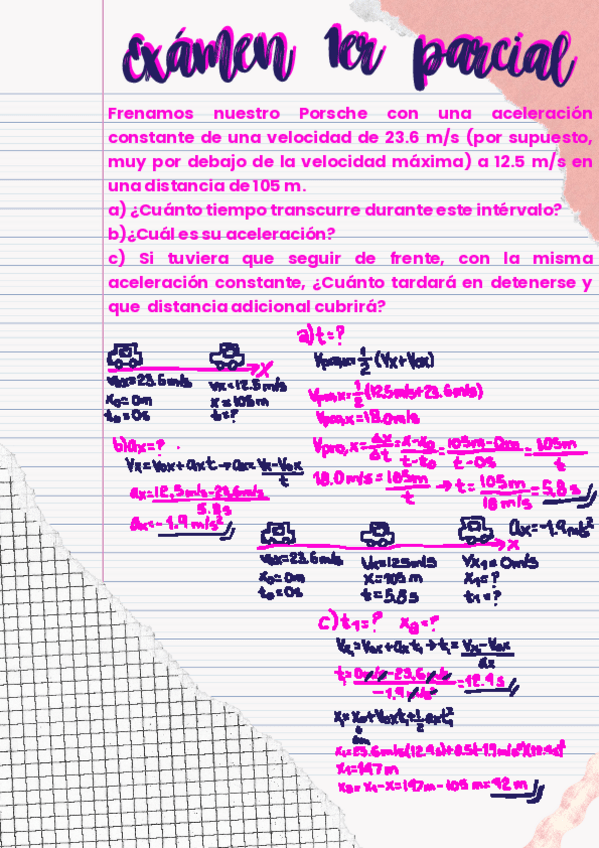 Exámen 1er parcial
Frenamos nuestro Porsche con una aceleración
constante de una velocidad de 23.6 m/s (por supuesto,
muy por debajo de la velocidad máxima) a 12.5 m/s en
una distancia de 105 m.
a) ¿Cuánto tiempo transcurre durante este intérvalo?
b)¿Cuál es su aceleración?
c) Si tuviera que seguir de frente, con la misma
aceleración constante, ¿Cuánto tardará en detenerse y
que distancia adicional cubrirá?
a) t=?
Vprom,x=1/2(Vx+Vox)
Vprom,x=1/2(12.5m/s+23.6m/s)
Vprom,x=18.0m/s
Vpro,x=Δx/Δt=x-x0/t-t0=105m-0m/t-0s=105m/t
18.0m/s=105m/t → t=105m/18m/s=5.8s
x
Vox=23.6m/s
x0=0m
t0=0s
Vx=12.5m/s
x=105m
t=?
b) ax=?
Vx=Vox+axt → ax=Vx-Vox/t
ax=12.5m/s-23.6m/s/5.8s
ax=-1.9m/s²
ax=-1.9m/s²
x
Vox=23.6m/s
x0=0m
t0=0s
Vx=12.5m/s
x=105m
t=5.8s
Vx1=0m/s
x1=?
t1=?
c) t1=? x2=?
Vx1=Vox+axt1 → t1=Vx-Vox/ax
t1=0m/s-23.6m/s/-1.9m/s²=12.4s
x1=x0+Voxt1+1/2axt1²
0m
x1=23.6m/s(12.4s)+0.5(-1.9m/s²)(12.4s)²
x1=147m
x2=x1-x=147m-105m=42m